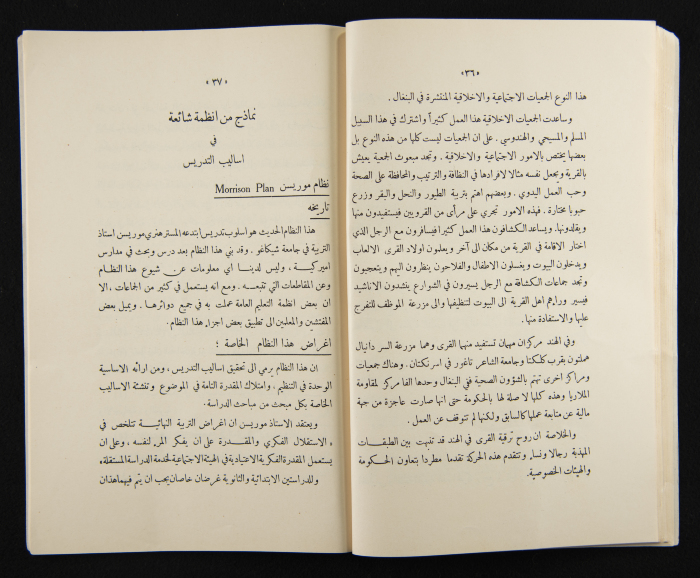 «٣٦»
هذا النوع الجمعيات الاجتماعية والاخلاقية المنتشرة في البنغال .
وساعدت الجمعيات الاخلاقية هذا العمل كثيراً واشترك في هذا السبيل
المسلم والمسيحي والهندوسي . على ان الجمعيات ليست كلها من هذه النوع بل
بعضها يختص بالامور الاجتماعية والاخلاقية . وتجد مبعوث الجمعية يعيش
بالقرية ويجعل نفسه مثالا لافرادها في النظافة والترتيب والمحافظة على الصحة
وحب العمل اليدوي . وبعضهم اهتم بتربية الطيور والنحل والبقر وزرع
حبوبا مختارة . فهذه الامور تجري على مرأى من القرويين فيستفيدون منها
ويقلدونها . ويساعد الكشافون هذا العمل كثيرا فيسافرون مع الرجل الذي
اختار الاقامة في القرية من مكان الى آخر ويعلمون اولاد القرى الالعاب
ويدخلون البيوت ويغسلون الاطفال والفلاحون ينظرون اليهم ويتعجبون
وتجد جماعات الكشافة مع الرجل يسيرون في الشوارع ينشدون الاناشيد
فيسير وراءهم اهل القرية الى البيوت لتنظيفها والى مزرعة الموظف للتفرج
عليها والاستفادة منها .
وفي الهند مركزان مهمان تستفيد منهما القرى وهما مزرعة السر دانيال
هملتون بقرب كلكتا وجامعة الشاعر تاغور في اسرنكتان . وهناك جمعيات
ومراكز اخرى تهتم بالشؤون الصحية ففي البنغال وحدها الفا مركز لمقاومة
الملاريا وهذه كلها لا صلة لها بالحكومة حتى انها صارت عاجزة من جهة
مالية عن متابعة عملها كالسابق ولكنها لم تتوقف عن العمل .
والخلاصة ان روح ترقية القرى في الهند قد تمذت بين الطبقات
المهذبة رجالا ونساء وتتقدم هذه الحركة تقدما مطردا بتعاون الحكومة
والهيئات الخصوصية .
«٣٧»
نماذج من انظمة شائعة
في
اساليب التدريس
نظام موريسن Morrison Plan
تاريخه
هذا النظام الحديث هو اسلوب تدريس ابتدعه المستر هنري موريسن استاذ
التربية في جامعة شيكاغو . وقد بني هذا النظام بعد درس وبحث في مدارس
اميركية ، وليس لدينا اي معلومات عن شيوع هذا النظام
وعن المقاطعات التي تتبعه . ومع انه يستعمل في كثير من الجماعات ، الا
ان بعض انظمة التعليم العامة عملت به في جميع دوائرها . ويميل بعض
المفتشين والمعلمين الى تطبيق بعض اجزاء هذا النظام .
اغراض هذا النظام الخاصة :
ان هذا النظام يرمي الى تحقيق اساليب التدريس ، ومن ارائه الاساسية
الوحدة في التنظيم ، وامتلاك المقدرة التامة في الموضوع وتفشئة الاساليب
الخاصة بكل مبحث من مباحث الدراسة .
ويعتقد الاستاذ موريسن ان اغراض التربية النهائية تتلخص في
« الاستقلال الفكري والمقدرة على ان يفكر المرء لنفسه ، وعلى ان
يستعمل المقدرة الفكرية الاعتيادية في الهيئة الاجتماعية لخدمة الدراسة المستقلة »
وللدراستين الابتدائية والثانوية غرضان خاصان يجب ان يتم فيهما هذان